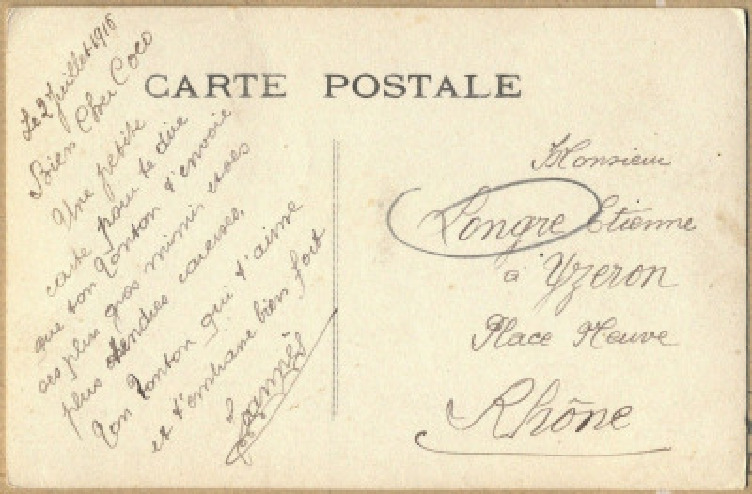 CARTE POSTALE
Le 2 Juillet 1916
Bien Cher Coco
Une petite
carte pour te dire
que ton Tonton t'envoie
ses plus gros mimis et ses
plus tendres caresses.
Ton Tonton qui t'aime
et t'embrasse bien fort
Monsieur
Longre Etienne
à Yzeron
Place Neuve
Rhône